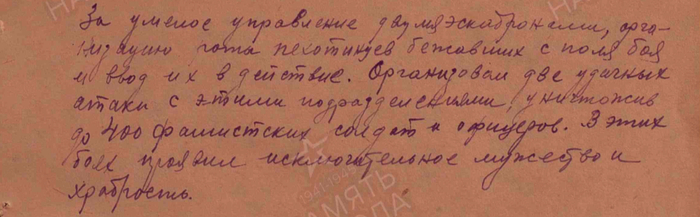 За умелое управление двумя эскадронами, орга-
низацию рота пехотинцев бежавших с поля боя
и ввод их в действие. Организовал две удачных
атаки с этими подразделениями, уничтожив
до 400 фашистских солдат и офицеров. В этих
боях проявил исключительное мужество и
храбрость.
ПАМЯТЬ